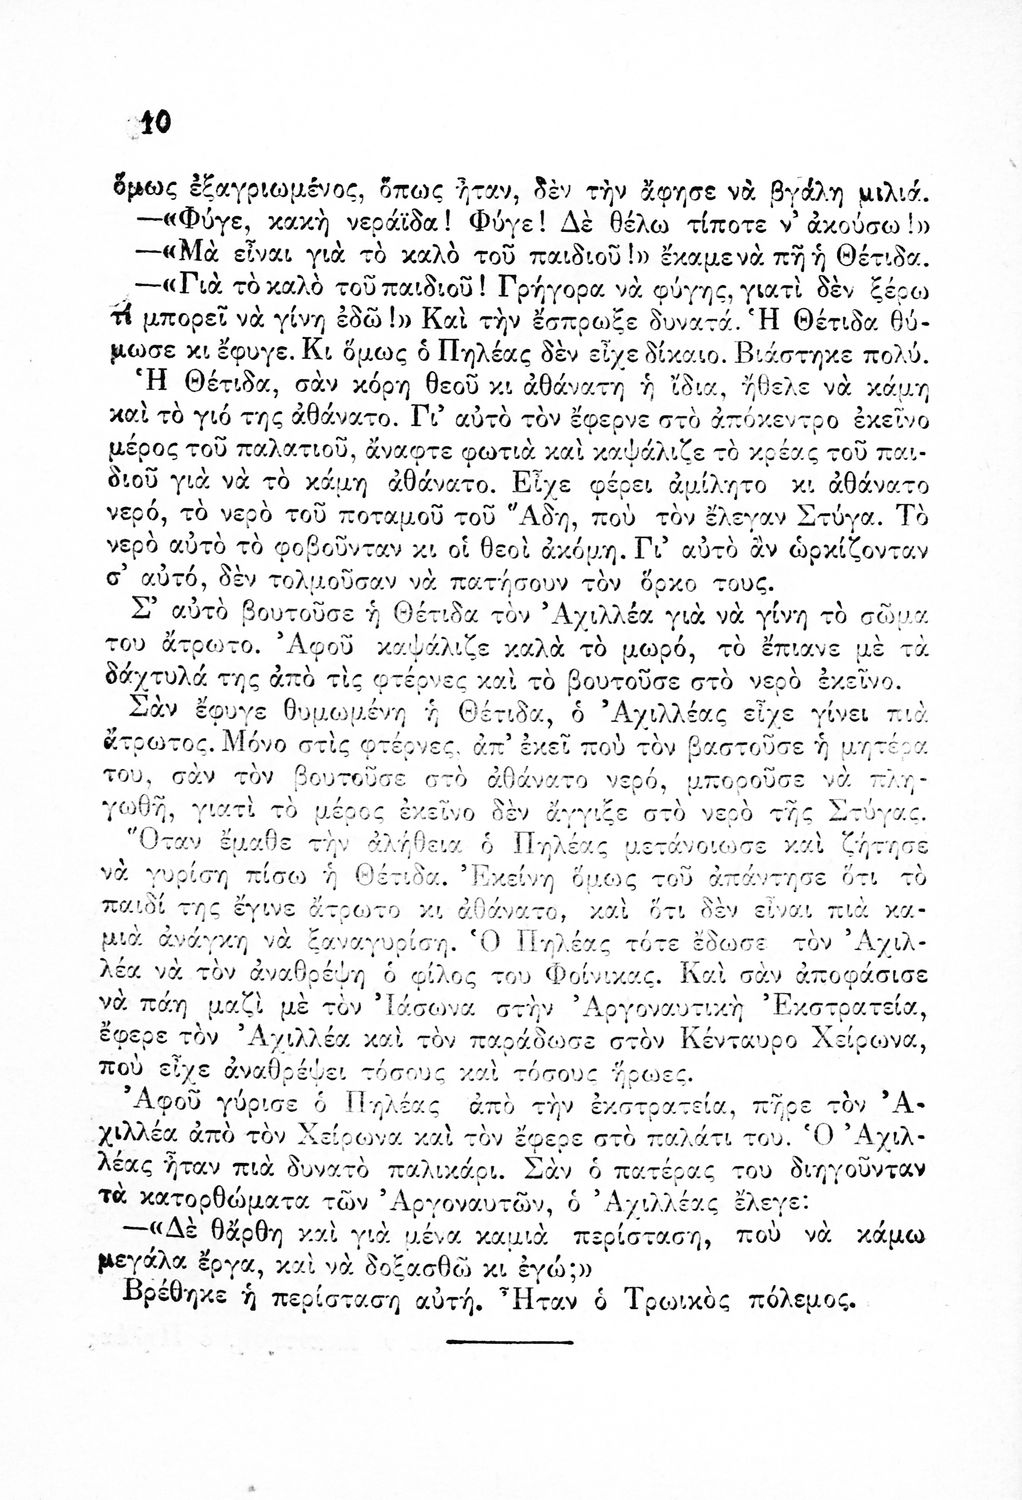 10
ὅμως ἐξαγριωμένος, ὅπως ἦταν, δὲν τὴν ἄφησε νὰ βγάλη μιλιά.
—«Φύγε, κακὴ νεράϊδα! Φύγε! Δὲ θέλω τίποτε ν’ ἀκούσω!»
—«Μὰ εἶναι γιὰ τὸ καλὸ τοῦ παιδιοῦ!» ἔκαμε νὰ πῆ ἡ Θέτιδα.
—«Γιὰ τὸ καλὸ τοῦ παιδιοῦ! Γρήγορα νὰ φύγης, γιατὶ δὲν ξέρω
τί μπορεῖ νὰ γίνη ἐδῶ!» Καὶ τὴν ἔσπρωξε δυνατά. Ἡ Θέτιδα θύ-
μωσε κι ἔφυγε. Κι ὅμως ὁ Πηλέας δὲν εἶχε δίκαιο. Βιάστηκε πολύ.
Ἡ Θέτιδα, σὰν κόρη θεοῦ κι ἀθάνατη ἡ ἴδια, ἤθελε νὰ κάμη
καὶ τὸ γιό της ἀθάνατο. Γι’ αὐτὸ τὸν ἔφερνε στὸ ἀπόκεντρο ἐκεῖνο
μέρος τοῦ παλατιοῦ, ἄναφτε φωτιὰ καὶ καψάλιζε τὸ κρέας τοῦ παι-
διοῦ γιὰ νὰ τὸ κάμη ἀθάνατο. Εἶχε φέρει ἀμίλητο κι ἀθάνατο
νερό, τὸ νερὸ τοῦ ποταμοῦ τοῦ Ἅδη, ποὺ τὸν ἔλεγαν Στύγα. Τὸ
νερὸ αὐτὸ τὸ φοβοῦνταν κι οἱ θεοὶ ἀκόμη. Γι’ αὐτὸ ἂν ὡρκίζονταν
σ’ αὐτό, δὲν τολμοῦσαν νὰ πατήσουν τὸν ὅρκο τους.
Σ’ αὐτὸ βουτοῦσε ἡ Θέτιδα τὸν Ἀχιλλέα γιὰ νὰ γίνη τὸ σῶμα
του ἄτρωτο. Ἀφοῦ καψάλιζε καλὰ τὸ μωρό, τὸ ἔπιανε μὲ τὰ
δάχτυλά της ἀπὸ τὶς φτέρνες καὶ τὸ βουτοῦσε στὸ νερὸ ἐκεῖνο.
Σὰν ἔφυγε θυμωμένη ἡ Θέτιδα, ὁ Ἀχιλλέας εἶχε γίνει πιὰ
ἄτρωτος. Μόνο στὶς φτέρνες, ἀπ’ ἐκεῖ ποὺ τὸν βαστοῦσε ἡ μητέρα
του, σὰν τὸν βουτοῦσε στὸ ἀθάνατο νερό, μποροῦσε νὰ πλη-
γωθῆ, γιατὶ τὸ μέρος ἐκεῖνο δὲν ἄγγιξε στὸ νερὸ τῆς Στύγας.
Ὅταν ἔμαθε τὴν ἀλήθεια ὁ Πηλέας μετάνοιωσε καὶ ζήτησε
νὰ γυρίση πίσω ἡ Θέτιδα. Ἐκείνη ὅμως τοῦ ἀπάντησε ὅτι τὸ
παιδί της ἔγινε ἄτρωτο κι ἀθάνατο, καὶ ὅτι δὲν εἶναι πιὰ κα-
μιὰ ἀνάγκη νὰ ξαναγυρίση. Ὁ Πηλέας τότε ἔδωσε τὸν Ἀχιλ-
λέα νὰ τὸν ἀναθρέψη ὁ φίλος του Φοίνικας. Καὶ σὰν ἀποφάσισε
νὰ πάη μαζὶ μὲ τὸν Ἰάσωνα στὴν Ἀργοναυτικὴ Ἐκστρατεία,
ἔφερε τὸν Ἀχιλλέα καὶ τὸν παράδωσε στὸν Κένταυρο Χείρωνα,
ποὺ εἶχε ἀναθρέψει τόσους καὶ τόσους ἥρωες.
Ἀφοῦ γύρισε ὁ Πηλέας ἀπὸ τὴν ἐκστρατεία, πῆρε τὸν Ἀ-
χιλλέα ἀπὸ τὸν Χείρωνα καὶ τὸν ἔφερε στὸ παλάτι του. Ὁ Ἀχιλ-
λέας ἦταν πιὰ δυνατὸ παλικάρι. Σὰν ὁ πατέρας του διηγοῦνταν
τὰ κατορθώματα τῶν Ἀργοναυτῶν, ὁ Ἀχιλλέας ἔλεγε:
—«Δὲ θἄρθη καὶ γιὰ μένα καμιὰ περίσταση, ποὺ νὰ κάμω
μεγάλα ἔργα, καὶ νὰ δοξασθῶ κι ἐγώ;»
Βρέθηκε ἡ περίσταση αὐτή. Ἦταν ὁ Τρωικὸς πόλεμος.